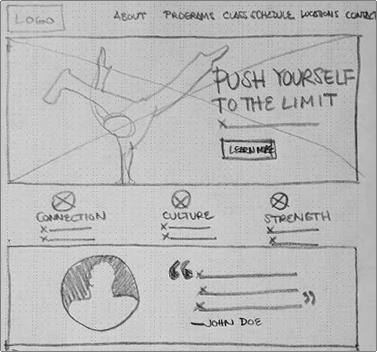 LOGO
ABOUT PROGRAMS CLASS SCHEDULE LOCATIONS CONTACT
PUSH YOURSELF
TO THE LIMIT
LEARN MORE
CONNECTION CULTURE STRENGTH
“
”
—JOHN DOE